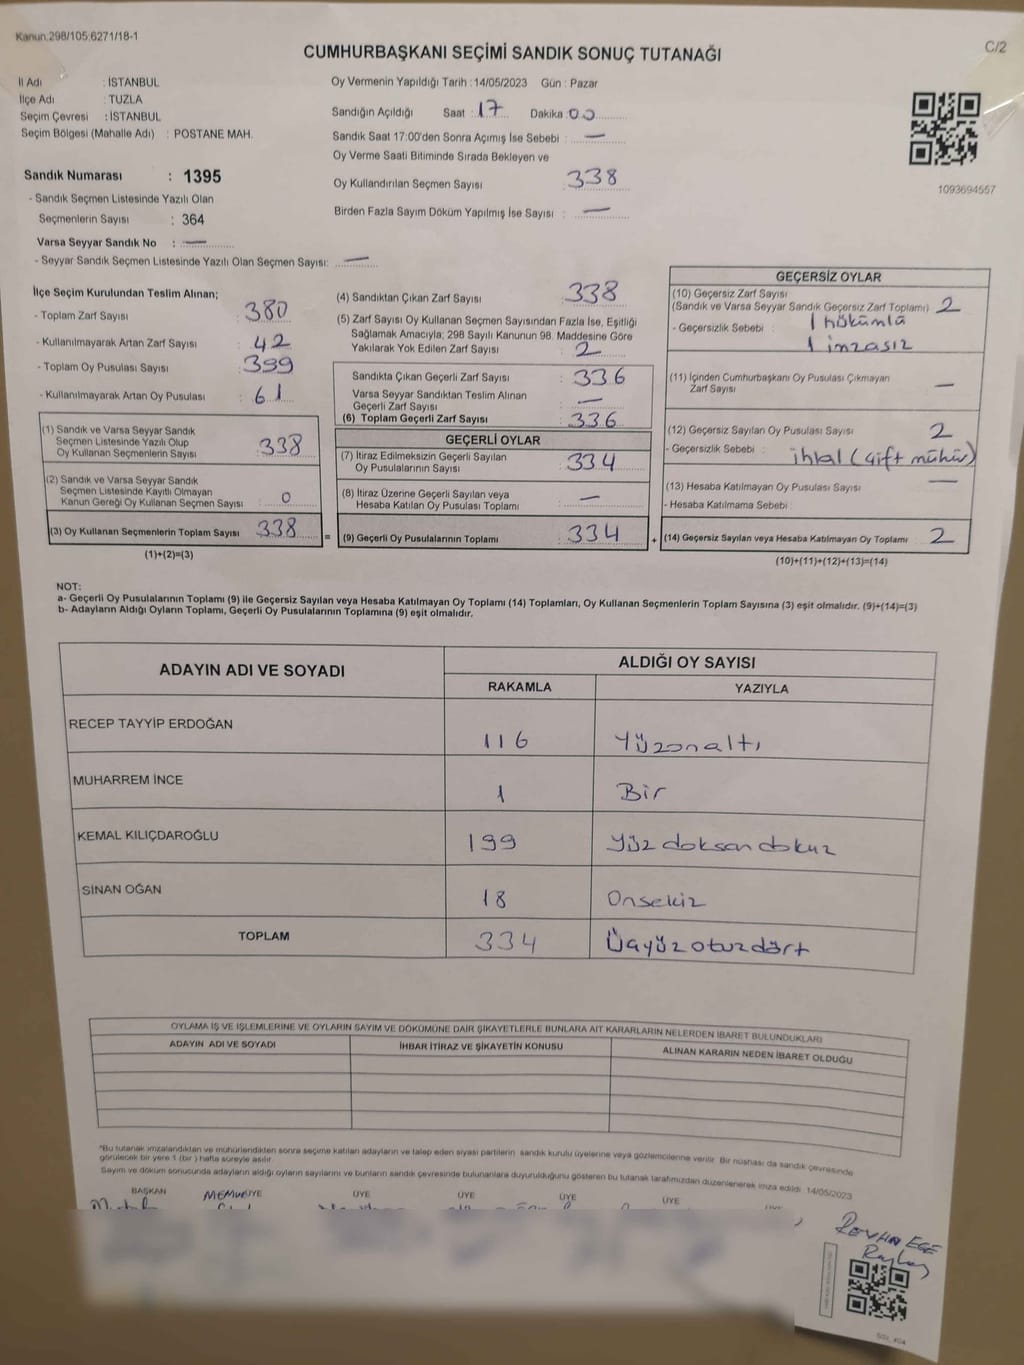 Kanun.298/105,6271/18-1
C/2
CUMHURBAŞKANI SEÇİMİ SANDIK SONUÇ TUTANAĞI
İl Adı : İSTANBUL
İlçe Adı : TUZLA
Seçim Çevresi : İSTANBUL
Seçim Bölgesi (Mahalle Adı) : POSTANE MAH.
Sandık Numarası : 1395
- Sandık Seçmen Listesinde Yazılı Olan
Seçmenlerin Sayısı : 364
Varsa Seyyar Sandık No : —
- Seyyar Sandık Seçmen Listesinde Yazılı Olan Seçmen Sayısı: —
Oy Vermenin Yapıldığı Tarih : 14/05/2023 Gün : Pazar
Sandığın Açıldığı Saat : 17 Dakika : 00
Sandık Saat 17:00'den Sonra Açımış İse Sebebi : —
Oy Verme Saati Bitiminde Sırada Bekleyen ve
Oy Kullandırılan Seçmen Sayısı : 338
Birden Fazla Sayım Döküm Yapılmış İse Sayısı : —
1093694557
İlçe Seçim Kurulundan Teslim Alınan;
- Toplam Zarf Sayısı : 380
- Kullanılmayarak Artan Zarf Sayısı : 42
- Toplam Oy Pusulası Sayısı : 399
- Kullanılmayarak Artan Oy Pusulası : 61
(1) Sandık ve Varsa Seyyar Sandık
Seçmen Listesinde Yazılı Olup
Oy Kullanan Seçmenlerin Sayısı : 338
(2) Sandık ve Varsa Seyyar Sandık
Seçmen Listesinde Kayıtlı Olmayan
Kanun Gereği Oy Kullanan Seçmen Sayısı : 0
(3) Oy Kullanan Seçmenlerin Toplam Sayısı : 338
(1)+(2)=(3)
(4) Sandıktan Çıkan Zarf Sayısı : 338
(5) Zarf Sayısı Oy Kullanan Seçmen Sayısından Fazla İse, Eşitliği
Sağlamak Amacıyla; 298 Sayılı Kanunun 98. Maddesine Göre
Yakılarak Yok Edilen Zarf Sayısı : 2
Sandıkta Çıkan Geçerli Zarf Sayısı : 336
Varsa Seyyar Sandıktan Teslim Alınan
Geçerli Zarf Sayısı : —
(6) Toplam Geçerli Zarf Sayısı : 336
GEÇERLİ OYLAR
(7) İtiraz Edilmeksizin Geçerli Sayılan
Oy Pusulalarının Sayısı : 334
(8) İtiraz Üzerine Geçerli Sayılan veya
Hesaba Katılan Oy Pusulası Toplamı : —
= (9) Geçerli Oy Pusulalarının Toplamı : 334 +
GEÇERSİZ OYLAR
(10) Geçersiz Zarf Sayısı
(Sandık ve Varsa Seyyar Sandık Geçersiz Zarf Toplamı) : 2
- Geçersizlik Sebebi : 1 hökümlü
1 imzasız
(11) İçinden Cumhurbaşkanı Oy Pusulası Çıkmayan
Zarf Sayısı : —
(12) Geçersiz Sayılan Oy Pusulası Sayısı : 2
- Geçersizlik Sebebi : ihlal (çift mühür)
(13) Hesaba Katılmayan Oy Pusulası Sayısı : —
- Hesaba Katılmama Sebebi :
(14) Geçersiz Sayılan veya Hesaba Katılmayan Oy Toplamı : 2
(10)+(11)+(12)+(13)=(14)
NOT:
a- Geçerli Oy Pusulalarının Toplamı (9) ile Geçersiz Sayılan veya Hesaba Katılmayan Oy Toplamı (14) Toplamları, Oy Kullanan Seçmenlerin Toplam Sayısına (3) eşit olmalıdır. (9)+(14)=(3)
b- Adayların Aldığı Oyların Toplamı, Geçerli Oy Pusulalarının Toplamına (9) eşit olmalıdır.
ADAYIN ADI VE SOYADI
ALDIĞI OY SAYISI
RAKAMLA YAZIYLA
RECEP TAYYİP ERDOĞAN 116 Yüzonaltı
MUHARREM İNCE 1 Bir
KEMAL KILIÇDAROĞLU 199 Yüz doksan dokuz
SİNAN OĞAN 18 Onsekiz
TOPLAM 334 Üçyüzotuzdört
OYLAMA İŞ VE İŞLEMLERİNE VE OYLARIN SAYIM VE DÖKÜMÜNE DAİR ŞİKAYETLERLE BUNLARA AİT KARARLARIN NELERDEN İBARET BULUNDUKLARI
ADAYIN ADI VE SOYADI İHBAR İTİRAZ VE ŞİKAYETİN KONUSU ALINAN KARARIN NEDEN İBARET OLDUĞU
*Bu tutanak imzalandıktan ve mühürlendikten sonra seçime katılan adayların ve talep eden siyasi partilerin sandık kurulu üyelerine veya gözlemcilerine verilir. Bir nüshası da sandık çevresinde
görülecek bir yere 1 (bir) hafta süreyle asılır.
Sayım ve döküm sonusunda adayların aldığı oyların sayılarını ve bunların sandık çevresinde bulunanlara duyurulduğunu gösteren bu tutanak tarafımızdan düzenlenerek imza edildi. 14/05/2023
BAŞKAN MEMUR ÜYE ÜYE ÜYE ÜYE ÜYE
REYHAN EGE